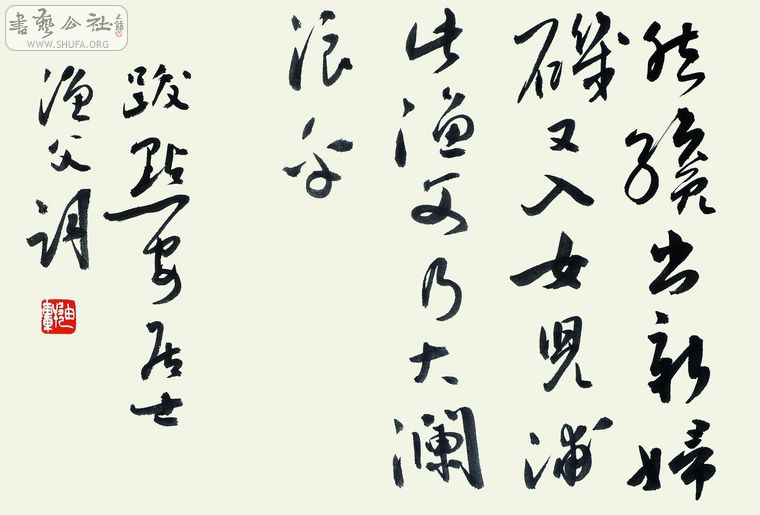 書藝公社
WWW.SHUFA.ORG
然纔出新婦
磯又入女兒浦
此漁父乃大瀾
浪乎
跋黔安居士
漁父詞